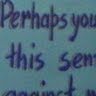 Perhaps you
this sen
against